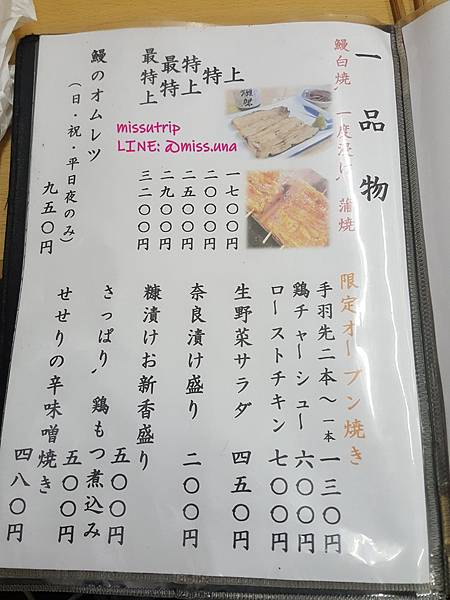 一品物
鰻白焼、一度浸け、蒲焼
上 一七〇〇円
特 二〇〇〇円
特上 二五〇〇円
最上 二九〇〇円
最特上 三二〇〇円
鰻のオムレツ
(日・祝・平日夜のみ)
九五〇円
missutrip
LINE: @miss.una
限定オーブン焼き
手羽先二本〜 一本一三〇円
鶏チャーシュー 六〇〇円
ローストチキン 七〇〇円
生野菜サラダ 四五〇円
奈良漬け盛り 二〇〇円
糠漬けお新香盛り 五〇〇円
さっぱり、鶏もつ煮込み 五〇〇円
せせりの辛味噌焼き 四八〇円